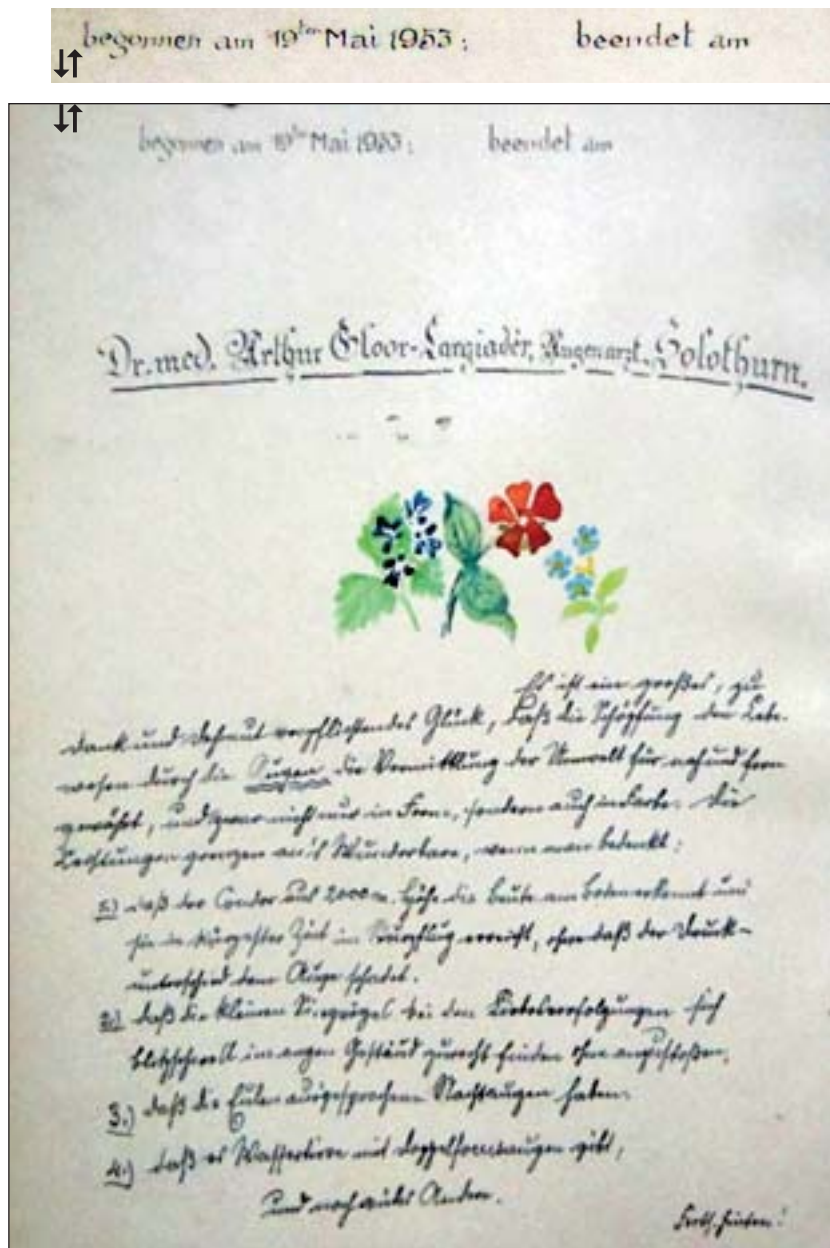 begonnen am 19ten Mai 1953; beendet am
begonnen am 19ten Mai 1953; beendet am
Dr. med. Arthur Gloor-Largiadèr, Augenarzt, Solothurn.
Es ist ein großes, zu
Dank und Demut verpflichtendes Glück, daß die Schöpfung den Lebe-
wesen durch die Augen die Vermittlung der Umwelt für nah und fern
gewährt, und zwar nicht nur in Form, sondern auch in Farbe. Die
Leistungen grenzen an's Wunderbare, wenn man bedenkt:
1.) daß der Condor aus 2000 m. Höhe die Beute am Boden erkennt und
sie in kürzester Zeit im Sturzflug erreicht, ohne daß der Druck-
unterschied dem Auge schadet.
2.) daß die kleinen Singvögel bei den Liebesverfolgungen sich
blitzschnell im engen Gesträuch zurecht finden ohne anzustoßen.
3.) daß die Eulen ausgesprochene Nachtaugen haben.
4.) daß es Wassertiere mit Doppelformaugen gibt,
und noch vieles Andere.